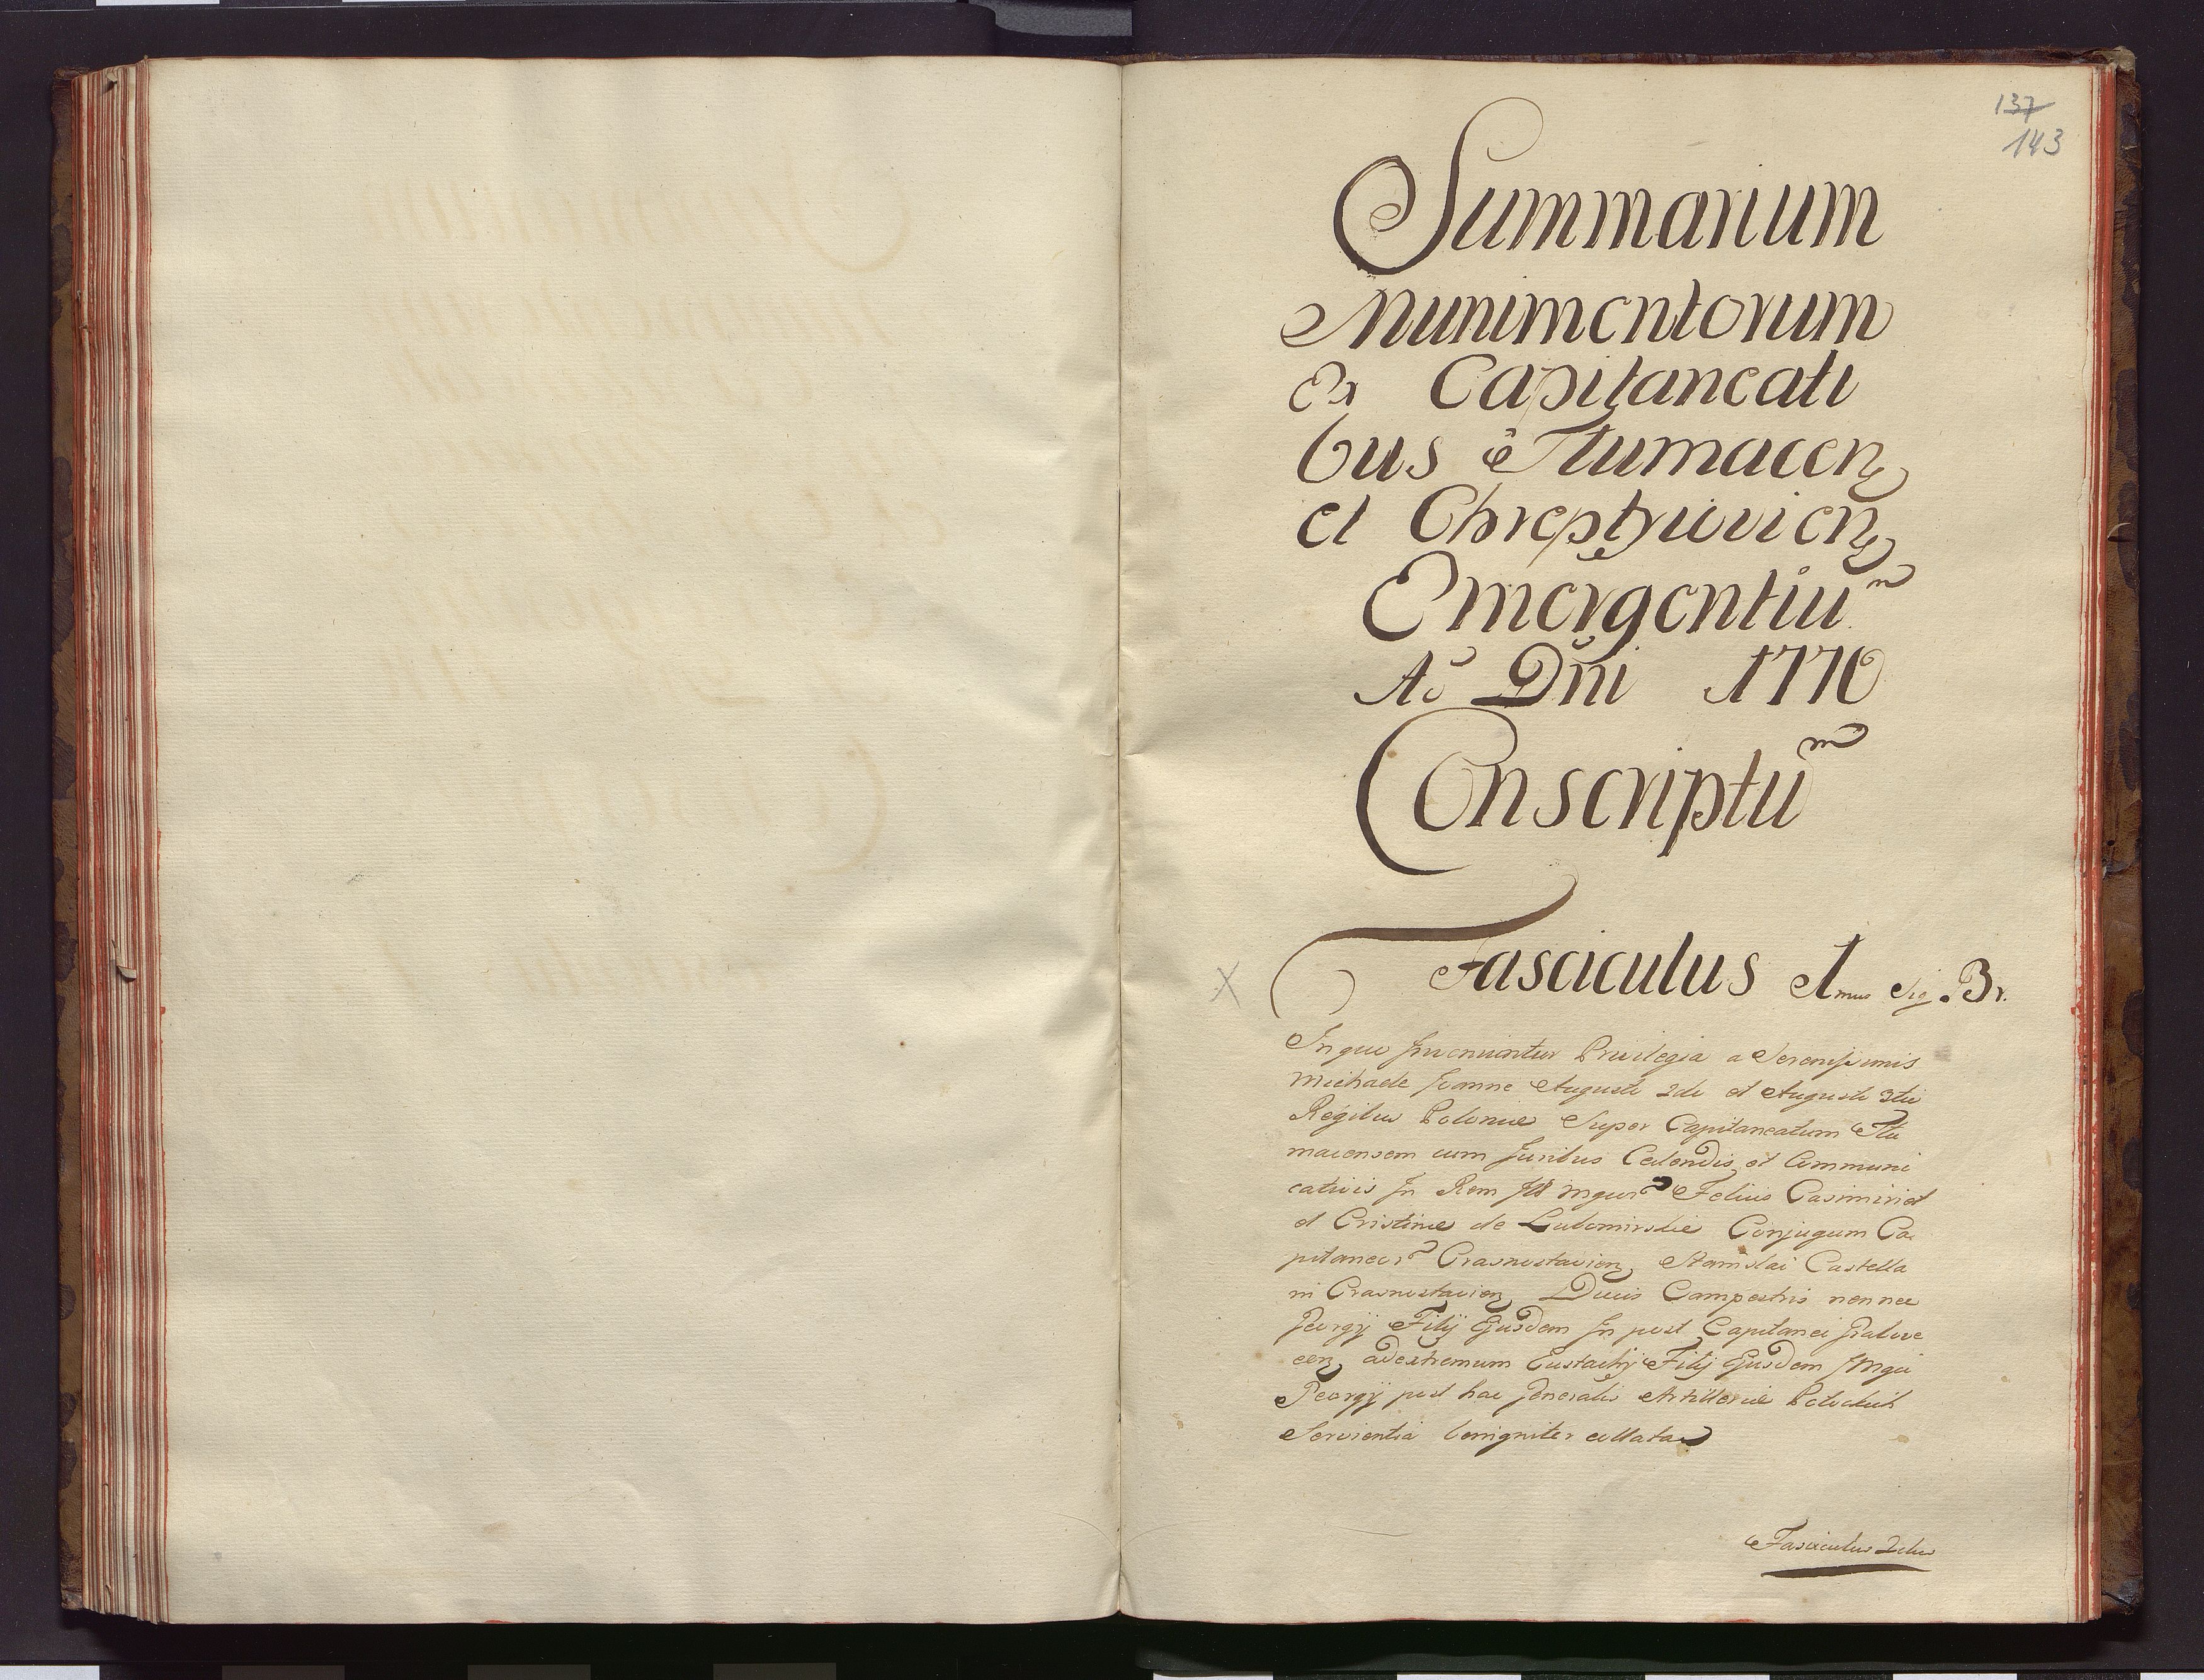 137
143
Summarium
Munimentorum
Ex Capitaneati
bus Tłumacen
et Chreptyiovien
Emergentiu m
Ao Dni 1770
Conscriptu m
X Fasciculus 1mus Sig. B.
In quo Inveniuntur Privilegia a Serenissimis
Michaele Joanne Augusto 2do et Augusto 3tio
Regibus Polonie Super Capitaneatum Tłu
macensem cum Juribus Cedendis et Communi
cativis In Rem Felicis Casimiri et
et Cristine de Lubomirskie Conjugum Ca
pitaneor Crasnostavien Stanislai Castella
ni Crasnostavien Ducis Campestris nec nec
Georgij Filij Ejusdem In post Capitanei Grabove
cen ad extremum Eustachij Filij Ejusdem
Georgij post hac Generalis Artillerie
Servientia benigniter collata
Fasciculus 2dus